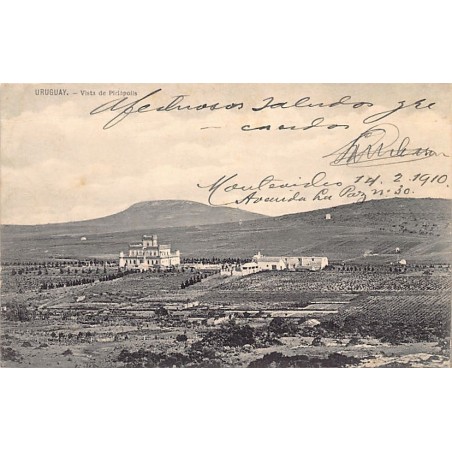 URUGUAY. — Vista de Piriápolis
Afectuosos Saludos y re
— cuerdos —
Montevideo 14.2.1910.
Avenida La Paz nº 30.